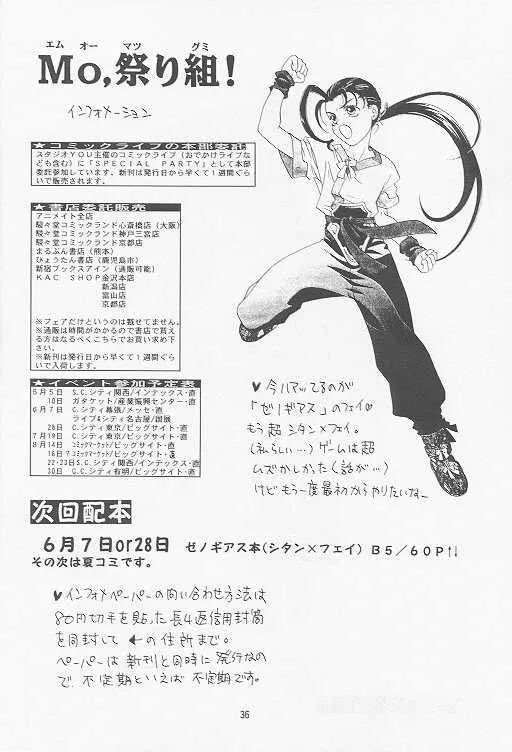 エム オー マツ グミ
Mo,祭り組!
インフォメーション
★コミックライブの本部委託
スタジオYOU主催のコミックライブ(おでかけライブな
ども含む)に「SPECIAL PARTY」として本部
委託参加しています。新刊は発行日から早くて1週間ぐら
いで販売されます。
★書店委託販売
アニメイト全店
駸々堂コミックランド心斎橋店(大阪)
駸々堂コミックランド神戸三宮店
駸々堂コミックランド京都店
まるぶん書店(熊本)
ひょうたん書店(鹿児島市)
新宿ブックスアイン(通販可能)
KAC SHOP金沢本店
新潟店
富山店
京都店
※フェアだけというのは載せてません。
※通販は時間がかかるので書店で買え
る方はなるべくこちらでお買い求め下
さい。
※新刊は発行日から早くて1週間ぐらい
で入荷します。
★イベント参加予定表
5月5日 S.C.シティ関西/インテックス・直
10日 ガタケット/産業振興センター・直
6月7日 C.シティ幕張/メッセ・直
ライブ&シティ名古屋/国展
28日 C.シティ東京/ビッグサイト・直
7月19日 C.シティ東京/ビッグサイト・直
8月14日 コミックマーケット/ビッグサイト・直
16日 コミックマーケット/ビッグサイト・直
22・23日 S.C.シティ関西/インテックス・直
30日 G.C.シティ有明/ビッグサイト・直
♥今ハマッてるのが
「ゼノギアス」のフェイ♥
もう超シタン×フェイ。
(私らしい…)ゲームは超
ムズかしかった(話が…)
けどもう一度最初からやりたいな~
次回配本
6月7日or28日 ゼノギアス本(シタン×フェイ) B5/60P↑↓
その次は夏コミです。
♥インフォメペーパーの問い合わせ方法は
80円切手を貼った長4返信用封筒
を同封して ← の住所まで。
ペーパーは新刊と同時に発行なの
で、不定期といえば不定期です。
36